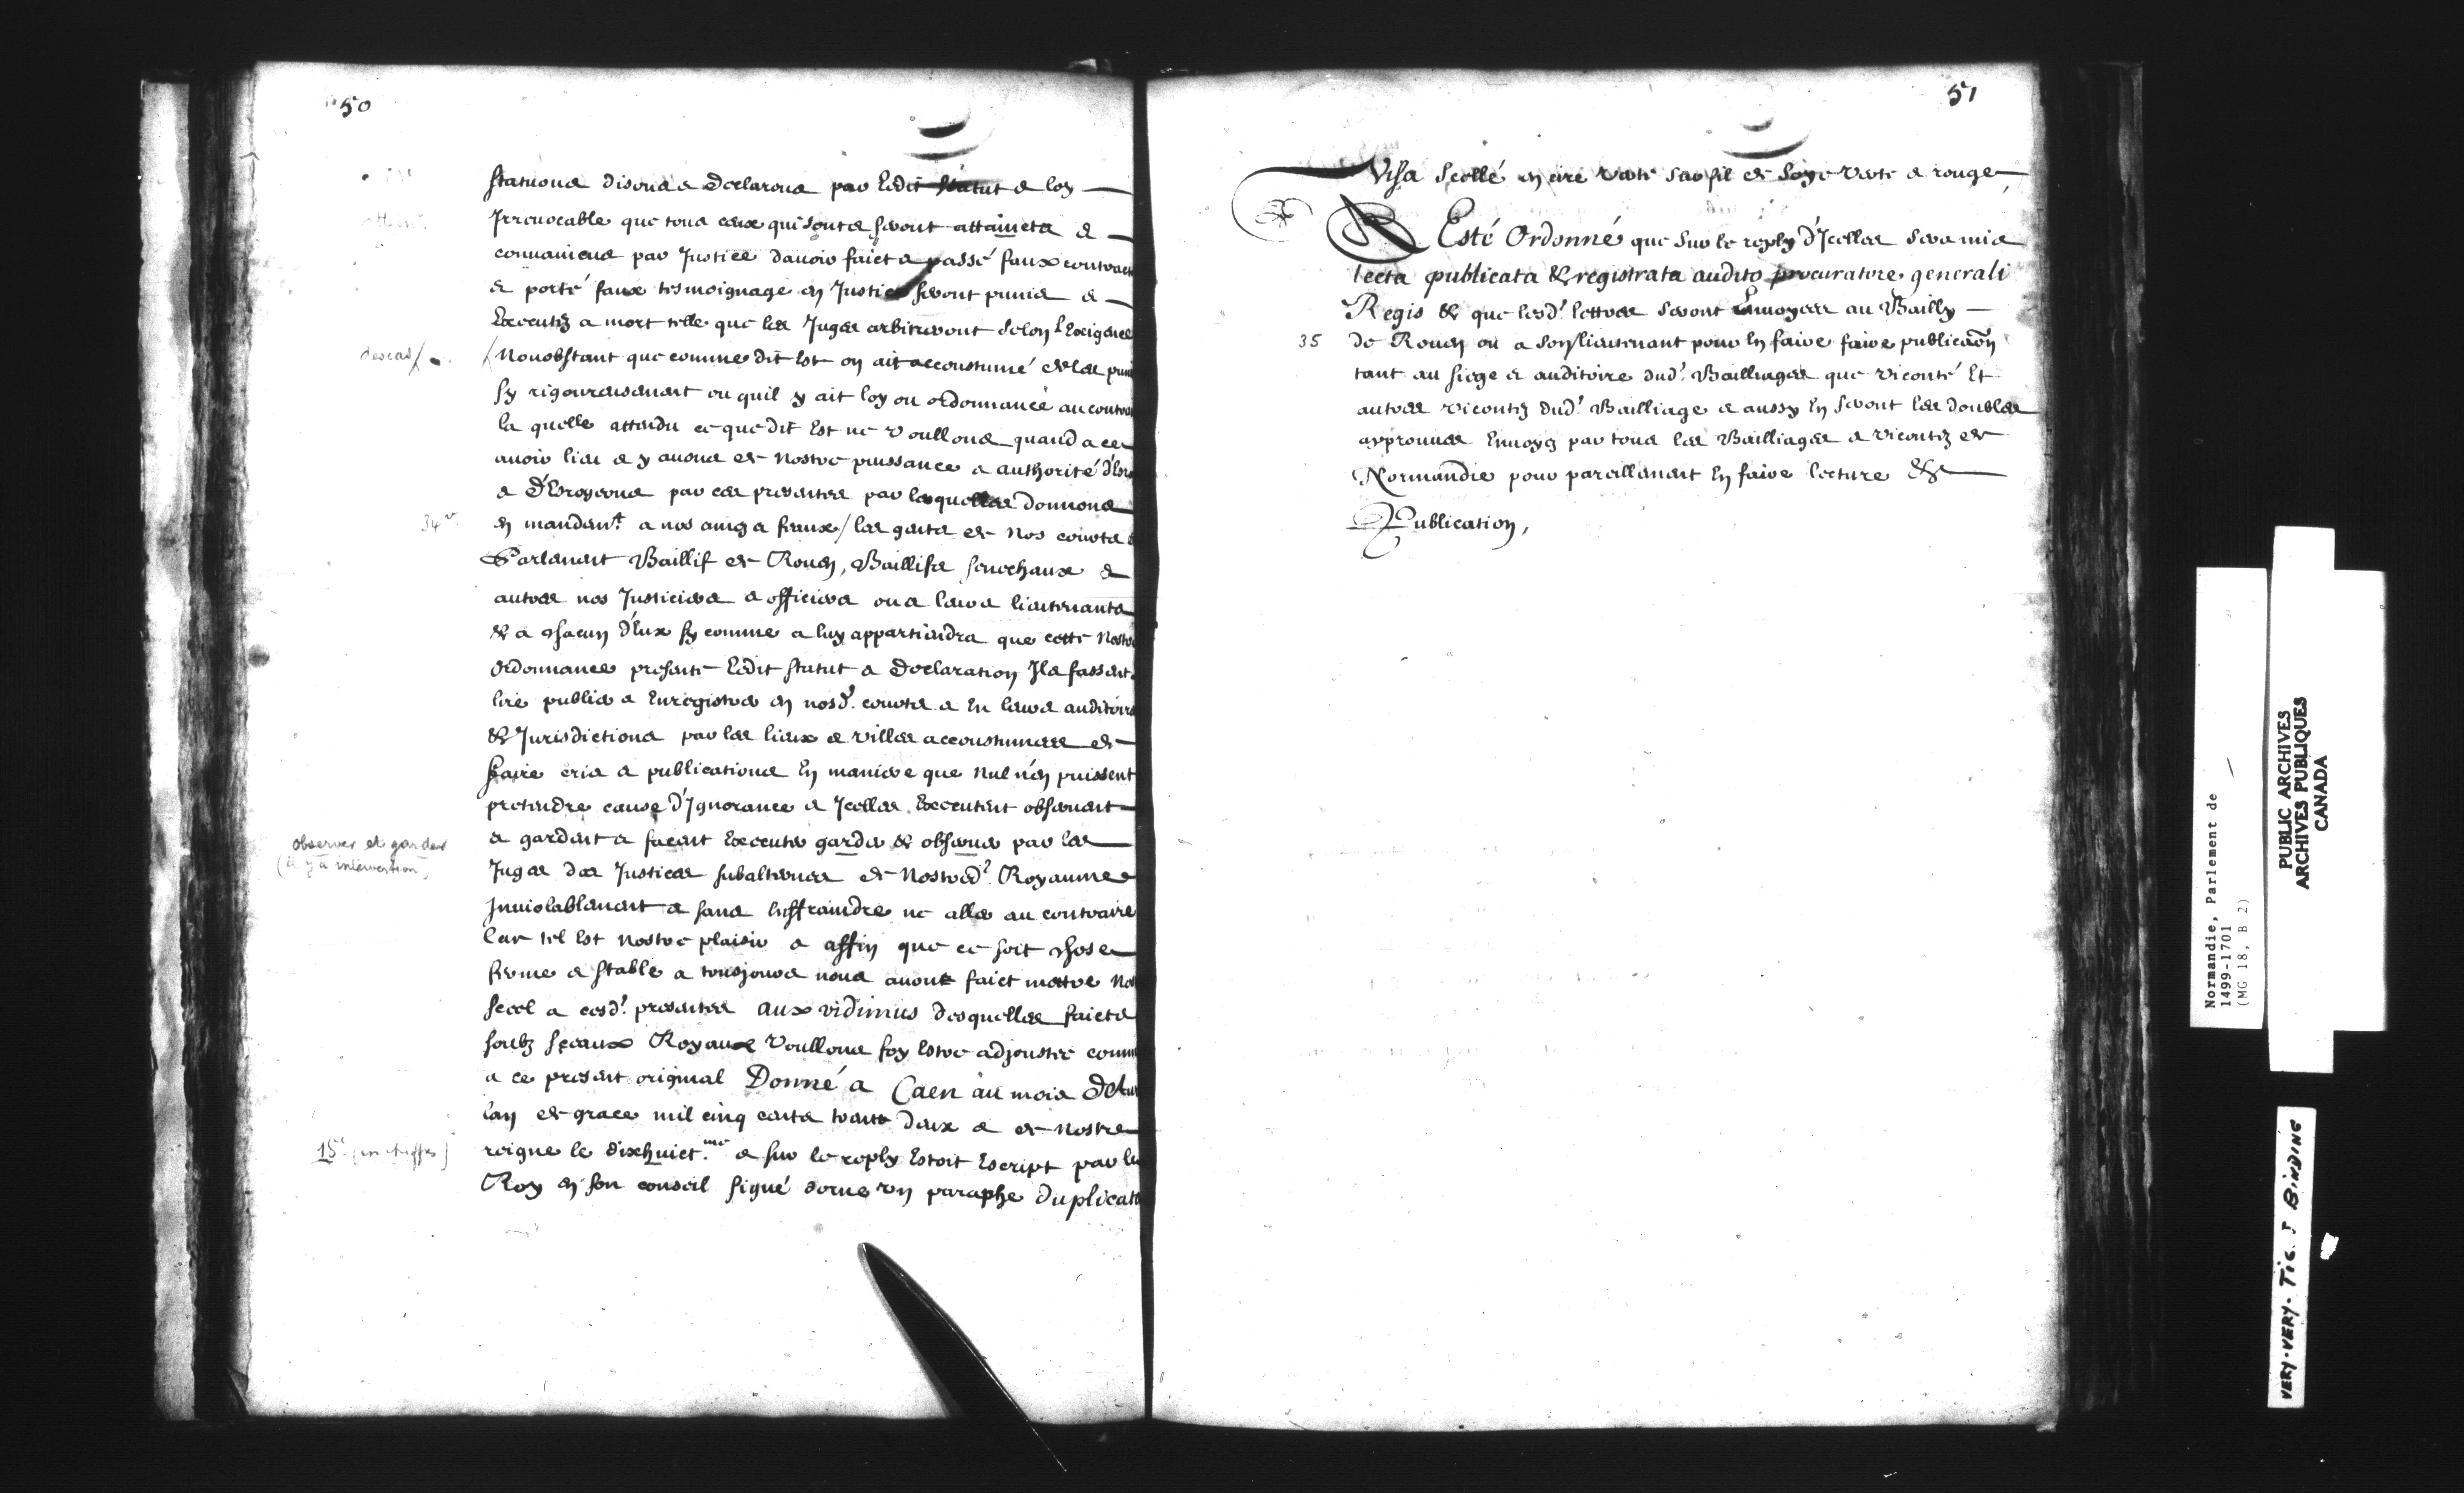 50
statuons disons & declarons par Edit statut & loy
Irreuocable que tous ceux qui sont & seront attaincts &
conuaincus par Justice dauoir faict & passé faux contracts
& porté faux tesmoignage en Justice seront punis &
Executez a mort telle que les Juges arbitreront selon l'Exigence
des cas /
/ Nonobstant que comme dit Est on ait accoustumé de les punir
sy rigoureusement ou quil y ait loy ou ordonnance au contraire
la quelle attendu ce que dit Est ne voullons quand a ce
auoir lieu & y auons de nostre puissance & authorité
& par ces presentes par lesquelles donnons
34 v
en mandemt a nos amez & feaux / les gents de nos courts de
Parlement Baillif de Rouen, Baillifs seneschaux &
autres nos Justiciers & officiers ou a leurs lieutenants
& a chacun d'Eux sy comme a luy appartiendra que cette nostre
ordonnance presente Edit statut & declaration Ils fassent
lire publier & Enregistrer en nosd. courts & En leurs auditoires
& Jurisdictions par les lieux & villes accoustumees de
faire cris & publications En maniere que nul n'en puissent
pretendre cause d'Ignorance & Icelles Executent obseruent
observer et garder
(il y a intervention)
& gardent & facent Executer garder & obseruer par les
Juges des Justices subalternes de nostred. Royaume
Inuiolablement & sans Enffraindre ne aller au contraire
Car tel Est nostre plaisir & affin que ce soit chose
ferme & stable a tousjours nous auons faict mettre nostre
seel a cesd. presentes aux vidimus desquelles faicts
soubz sceaux Royaux voullons foy Estre adjoustee comme
a ce present original Donné a Caen au mois
lan de grace mil cinq cents trente deux & de nostre
18e (en chiffres)
reigne le dixhuict.me & sur le reply Estoit Escript par le
Roy en son conseil signé dorne un paraphe duplicata
51
Visa scellé en cire verte sur fil de soye verte & rouge
A Esté Ordonné que sur le reply d'Icelles sera mis
lecta publicata & registrata audito procuratore generali
Regis & que lesd. lettres seront Enuoyees au Bailly
35
de Rouen ou a son lieutenant pour En faire faire publicaon
tant au siege & auditoire dud. Bailliages que viconté Et
autres vicontez dud. Bailliage & aussy En seront les doubles
approuues Enuoyez par tous les Bailliages & vicontez de
Normandie pour pareillement En faire lecture &
Publication,
Normandie, Parlement de
1499-1701
(MG 18, B 2)
PUBLIC ARCHIVES
ARCHIVES PUBLIQUES
CANADA
VERY-VERY-TIGHT BINDING